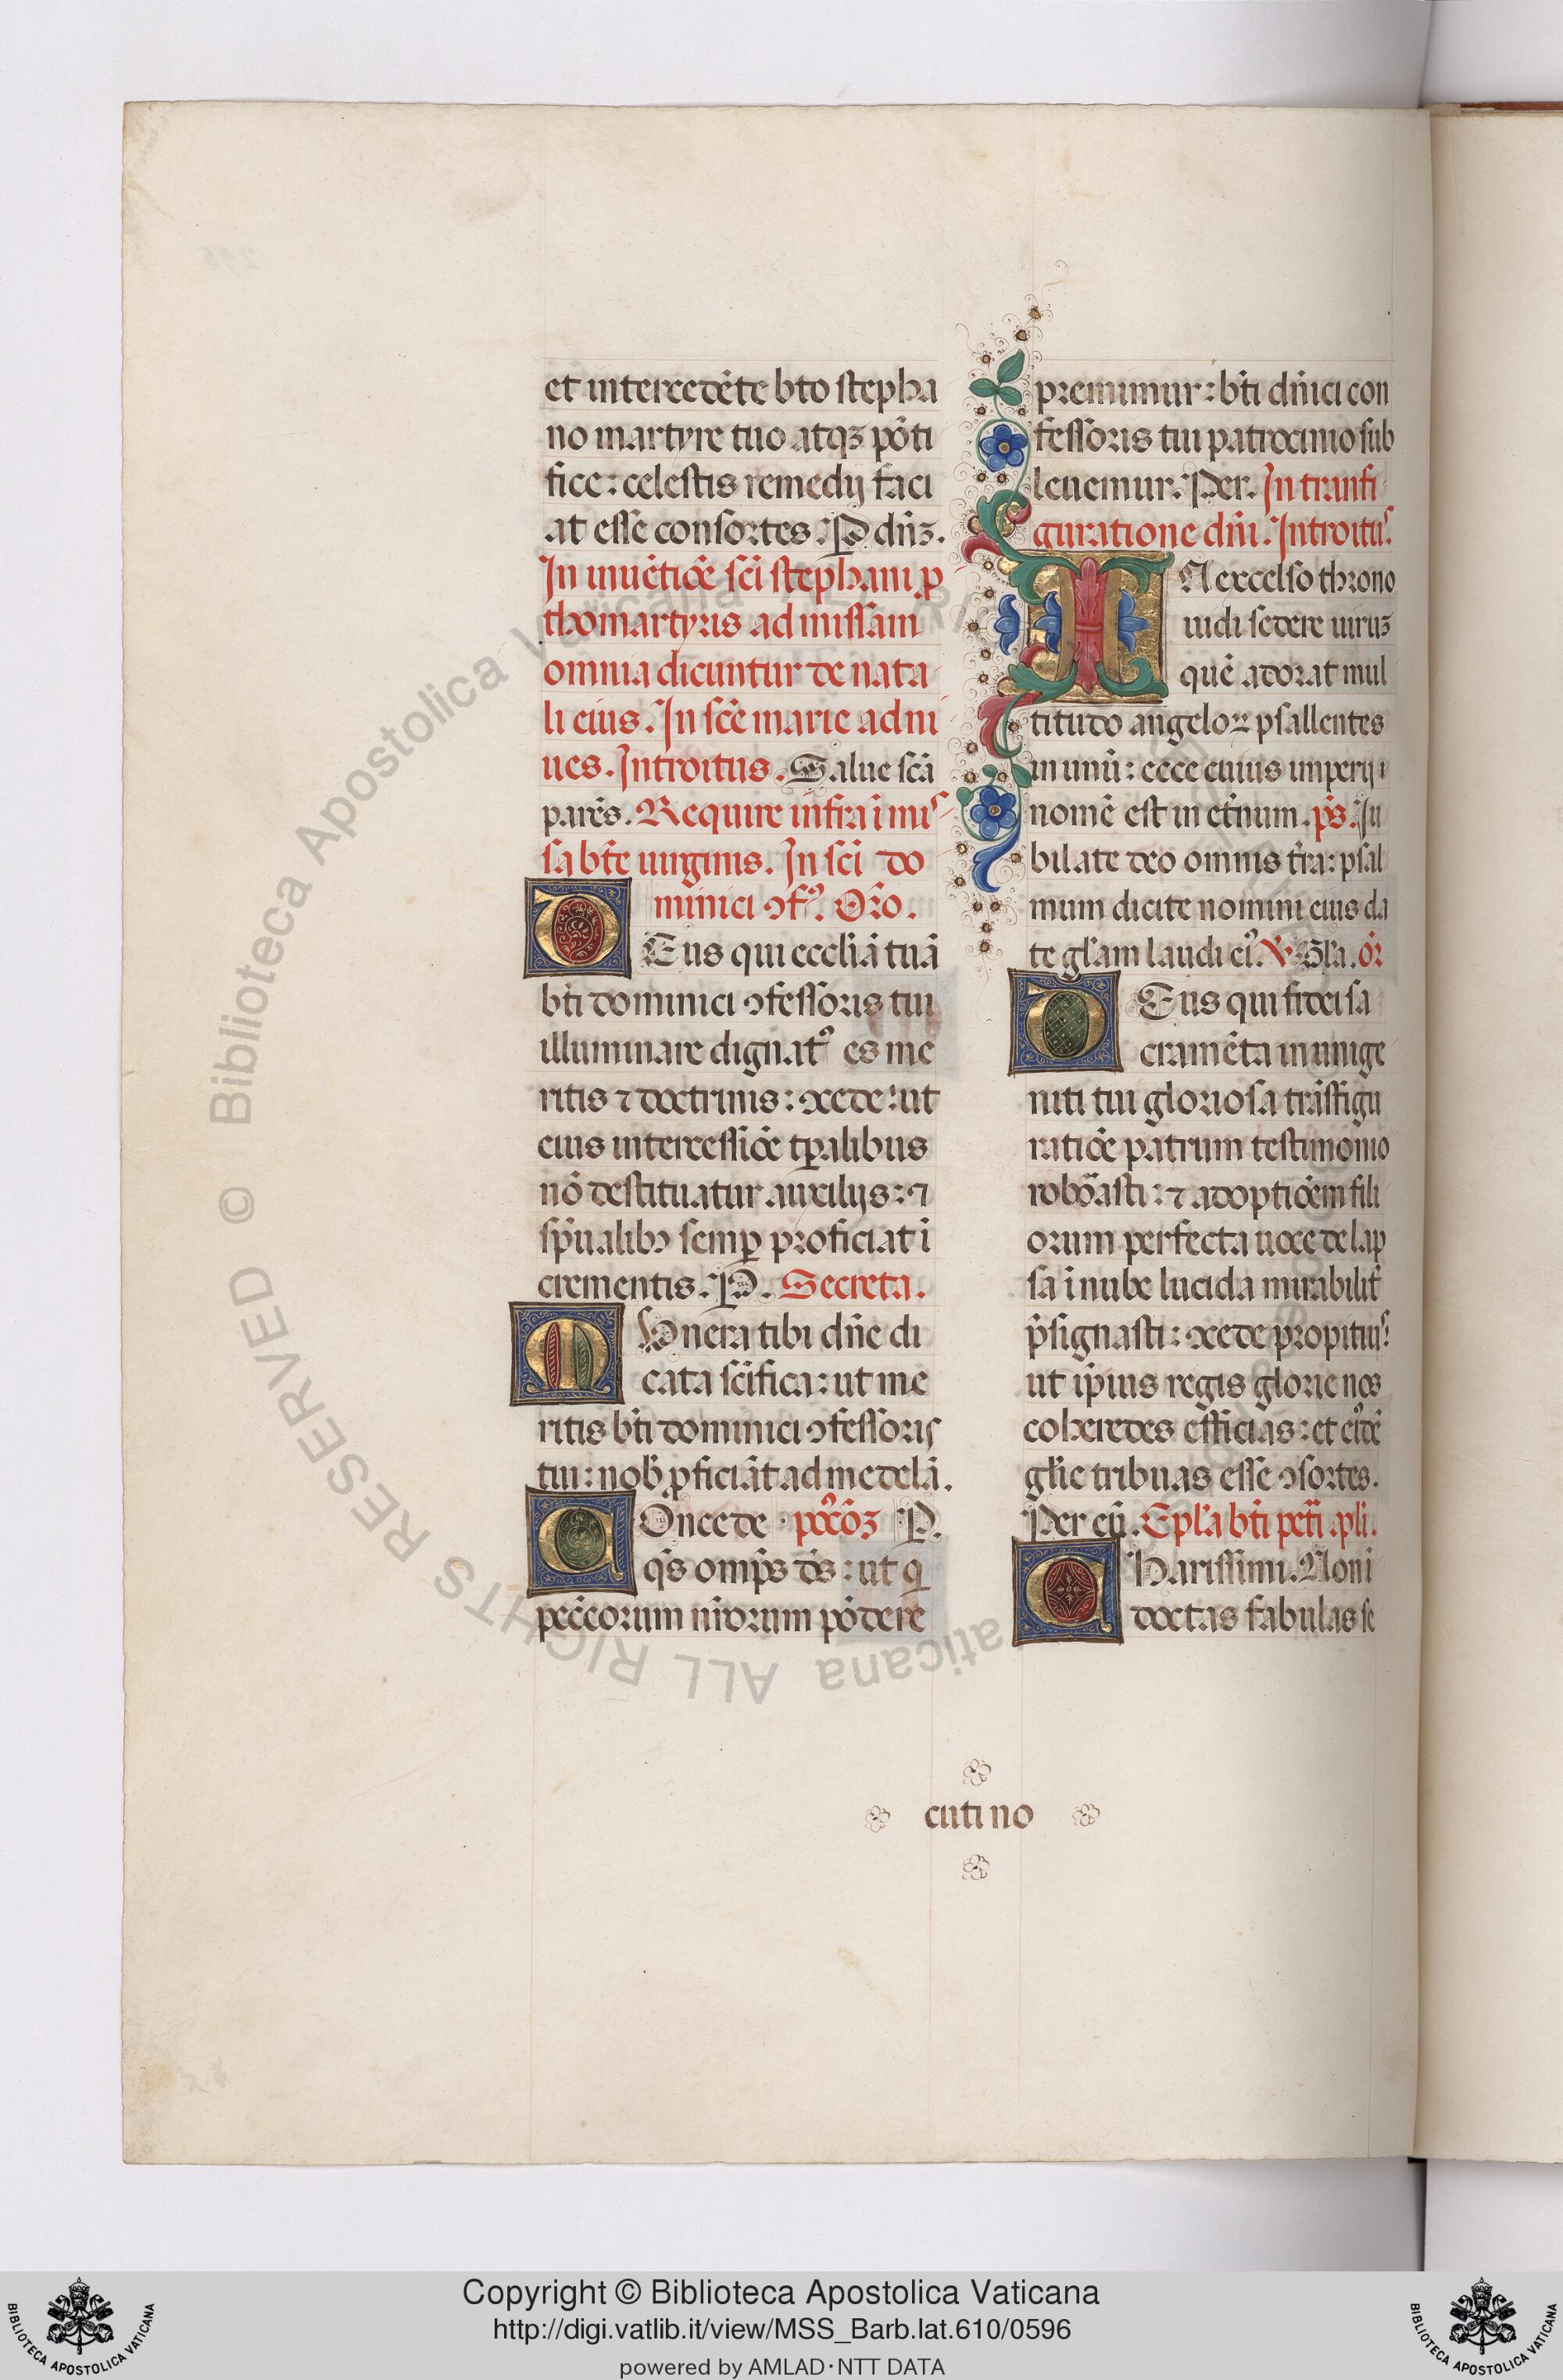 et intercedēte bto stepha
no martyre tuo atqꝫ pōti
fice: celestis remedij faci
at esse consortes. P dñꝫ.
In inuētiōe sci stephani ꝓ
thomartyris ad missam
omnia dicuntur de nata
li eius. In scē marie ad ni
ues. Introitus. Salue scā
parēs. Require infra ī mi
sa btē uirginis. In sci do
minici ꝯfꝰ. Orō.
DEus qui eccliā tuā
bti dominici ꝯfessoris tui
illuminare dignatꝰ es me
ritis ⁊ doctrinis: ꝯcede: ut
eius intercessiōe tꝑalibus
nō destituatur auxilijs: ⁊
spūalibꝫ semꝑ proficiat ī
crementis. P. Secreta.
MUnera tibi dñe di
cata scīfica: ut me
ritis bti dominici ꝯfessoris
tui: nob ꝓficiāt ad medelā.
COncede pꝰcōꝫ P.
qs omps ds: ut q
peccorum nrorum pōdere
premimur: bti dñici con
fessoris tui patrocinio sub
leuemur. Per. In transfi
guratione dñi. Introitꝰ.
IN excelso throno
uidi sedere uirūꝫ
quē adorat mul
titudo angeloꝝ psallentes
in unū: ecce cuius imperij
nomē est in etnum. ps. Iu
bilate deo omnis tra: psal
mum dicite nomini eius da
te glam laudi eiꝰ. V. Gla. or
DEus qui fidei sa
cramēta in unige
niti tui gloriosa trāsfigu
ratiōe patrum testimonio
roborasti: ⁊ adoptiōem fili
orum perfecta uoce delap
sa ī nube lucida mirabilit
psignasti: ꝯcede propitiꝰ:
ut ipius regis glorie nos
coheredes efficias: et eiꝰdē
glie tribuas esse ꝯsortes.
Per eū. Epla bti petri apli.
CHarissimi. Non ī
doctas fabulas se
cuti no
© Biblioteca Apostolica Vaticana ALL RIGHTS RESERVED
Copyright © Biblioteca Apostolica Vaticana
http://digi.vatlib.it/view/MSS_Barb.lat.610/0596
powered by AMLAD·NTT DATA
BIBLIOTECA APOSTOLICA VATICANA
BIBLIOTECA APOSTOLICA VATICANA